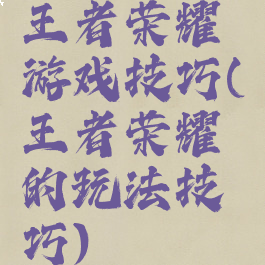 王者荣耀
游戏技巧(
王者荣耀
的玩法技
巧)